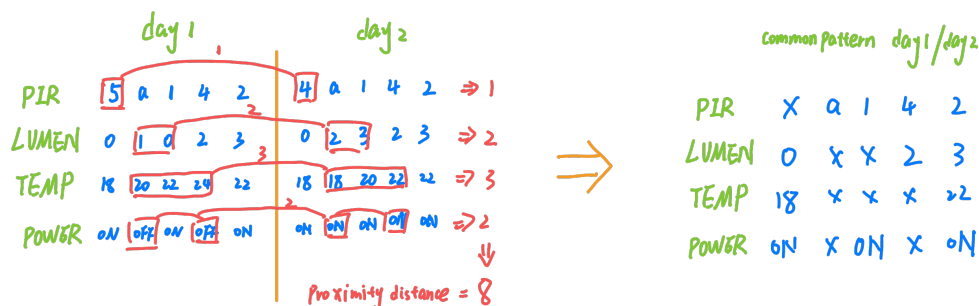 day1 day2
1
PIR 5 a 1 4 2 4 a 1 4 2 ⇒ 1
2
LUMEN 0 1 0 2 3 0 2 3 2 3 ⇒ 2
3
TEMP 18 20 22 24 22 18 18 20 22 22 ⇒ 3
2
POWER ON OFF ON OFF ON ON ON ON ON ON ⇒ 2
Proximity distance = 8
Common pattern day1/day2
PIR X a 1 4 2
LUMEN 0 X X 2 3
TEMP 18 X X X 22
POWER ON X ON X ON